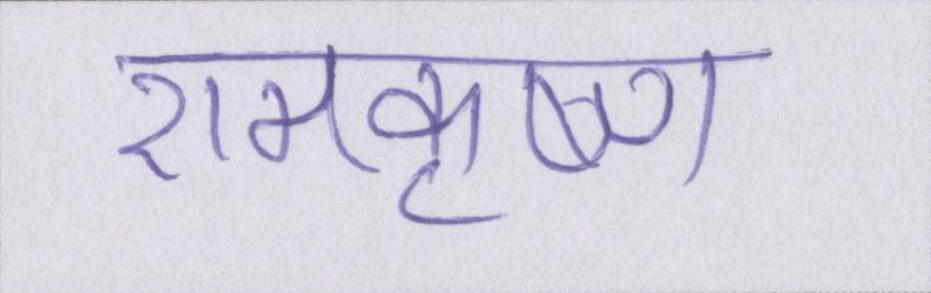 रामकृष्ण